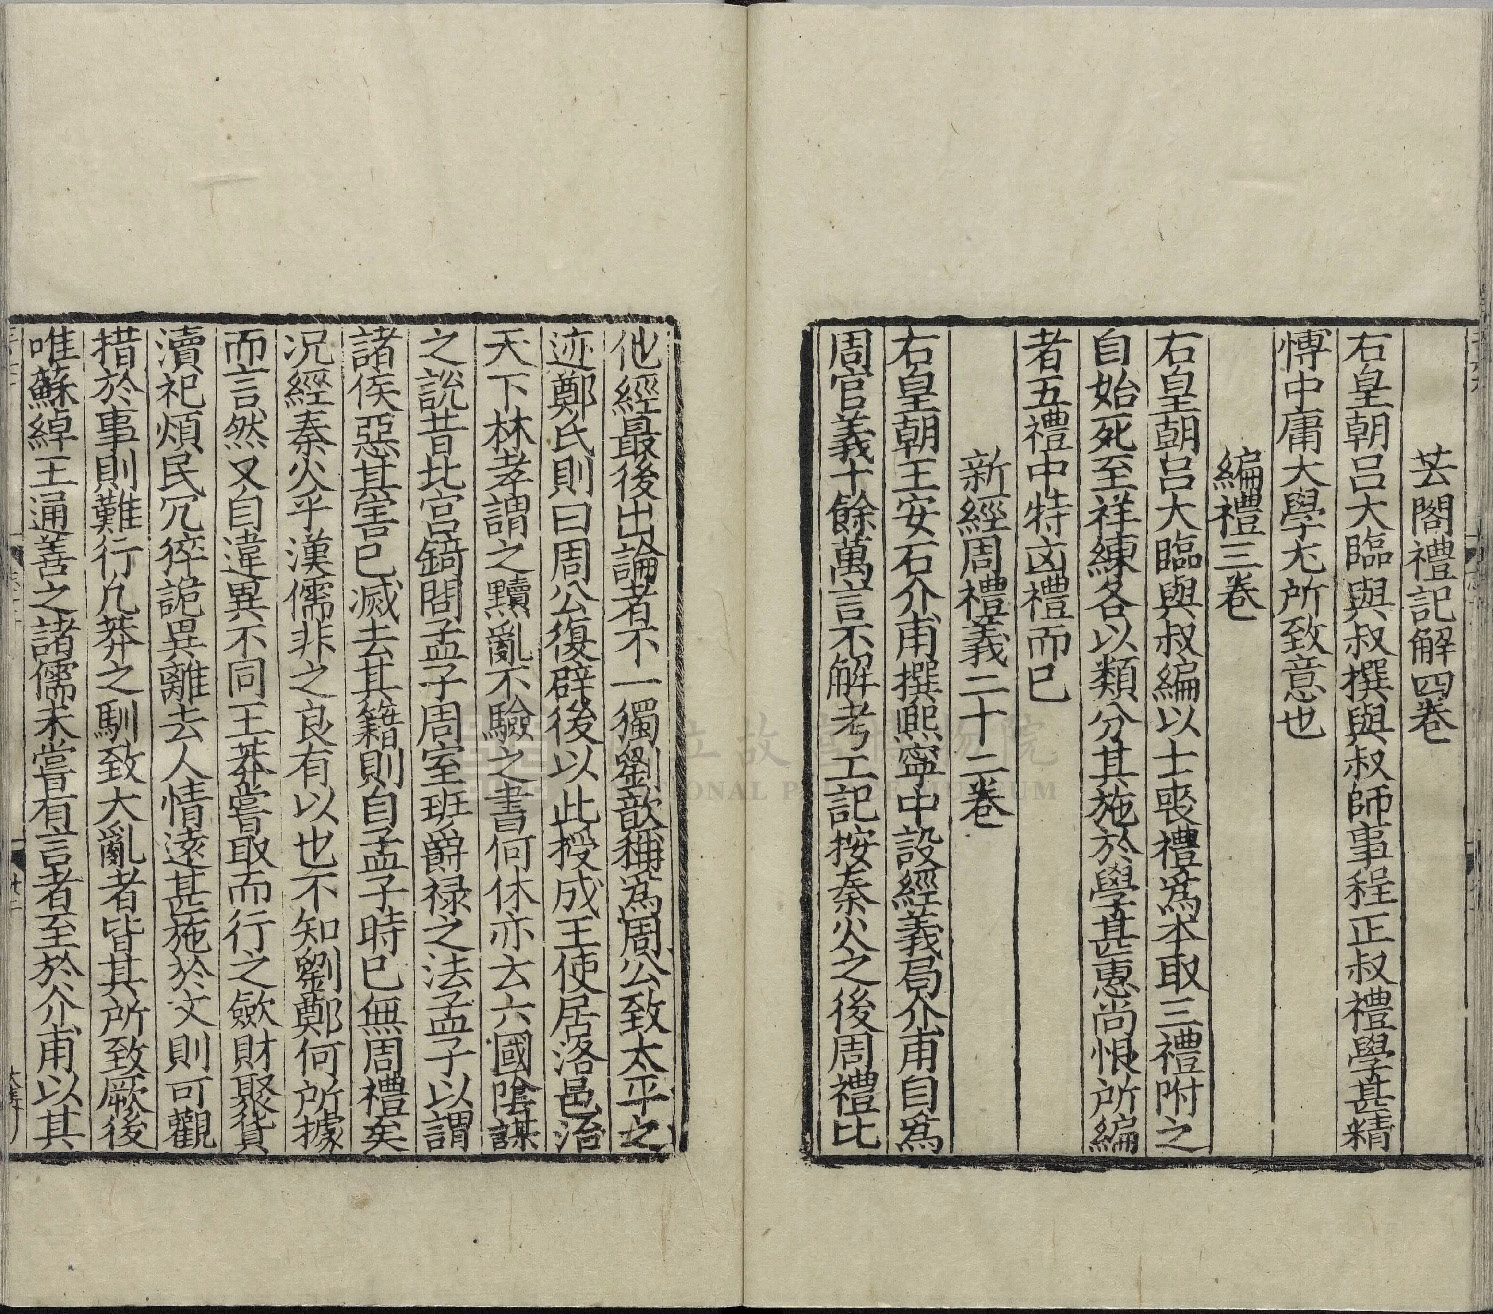 芸閣禮記解四卷
右皇朝呂大臨與叔撰與叔師事程正叔禮學甚精
慱中庸大學尤所致意也
編禮三卷
右皇朝呂大臨與叔編以士喪禮爲本取三禮附之
自始死至祥練各以類分其施於學甚惠尚恨所編
者五禮中特凶禮而已
新經周禮義二十二卷
右皇朝王安石介甫撰熙寧中設經義局介甫自爲
周官義十餘萬言不解考工記按秦火之後周禮比
他經最後出論者不一獨劉歆稱爲周公致太平之
迹鄭氏則曰周公復辟後以此授成王使居洛邑治
天下林孝謂之黷亂不驗之書何休亦云六國陰謀
之說昔北宫錡問孟子周室班爵禄之法孟子以謂
諸侯惡其害已滅去其籍則自孟子時已無周禮矣
况經秦火乎漢儒非之良有以也不知劉鄭何所據
而言然又自違異不同王莽嘗取而行之歛財聚貨
瀆祀煩民冗碎詭異離去人情逺甚施於文則可觀
措於事則難行凢莽之馴致大亂者皆其所致厥後
唯蘇綽王通善之諸儒未嘗有言者至於介甫以其
國立故宮博物院
NATIONAL PALACE MUSEUM